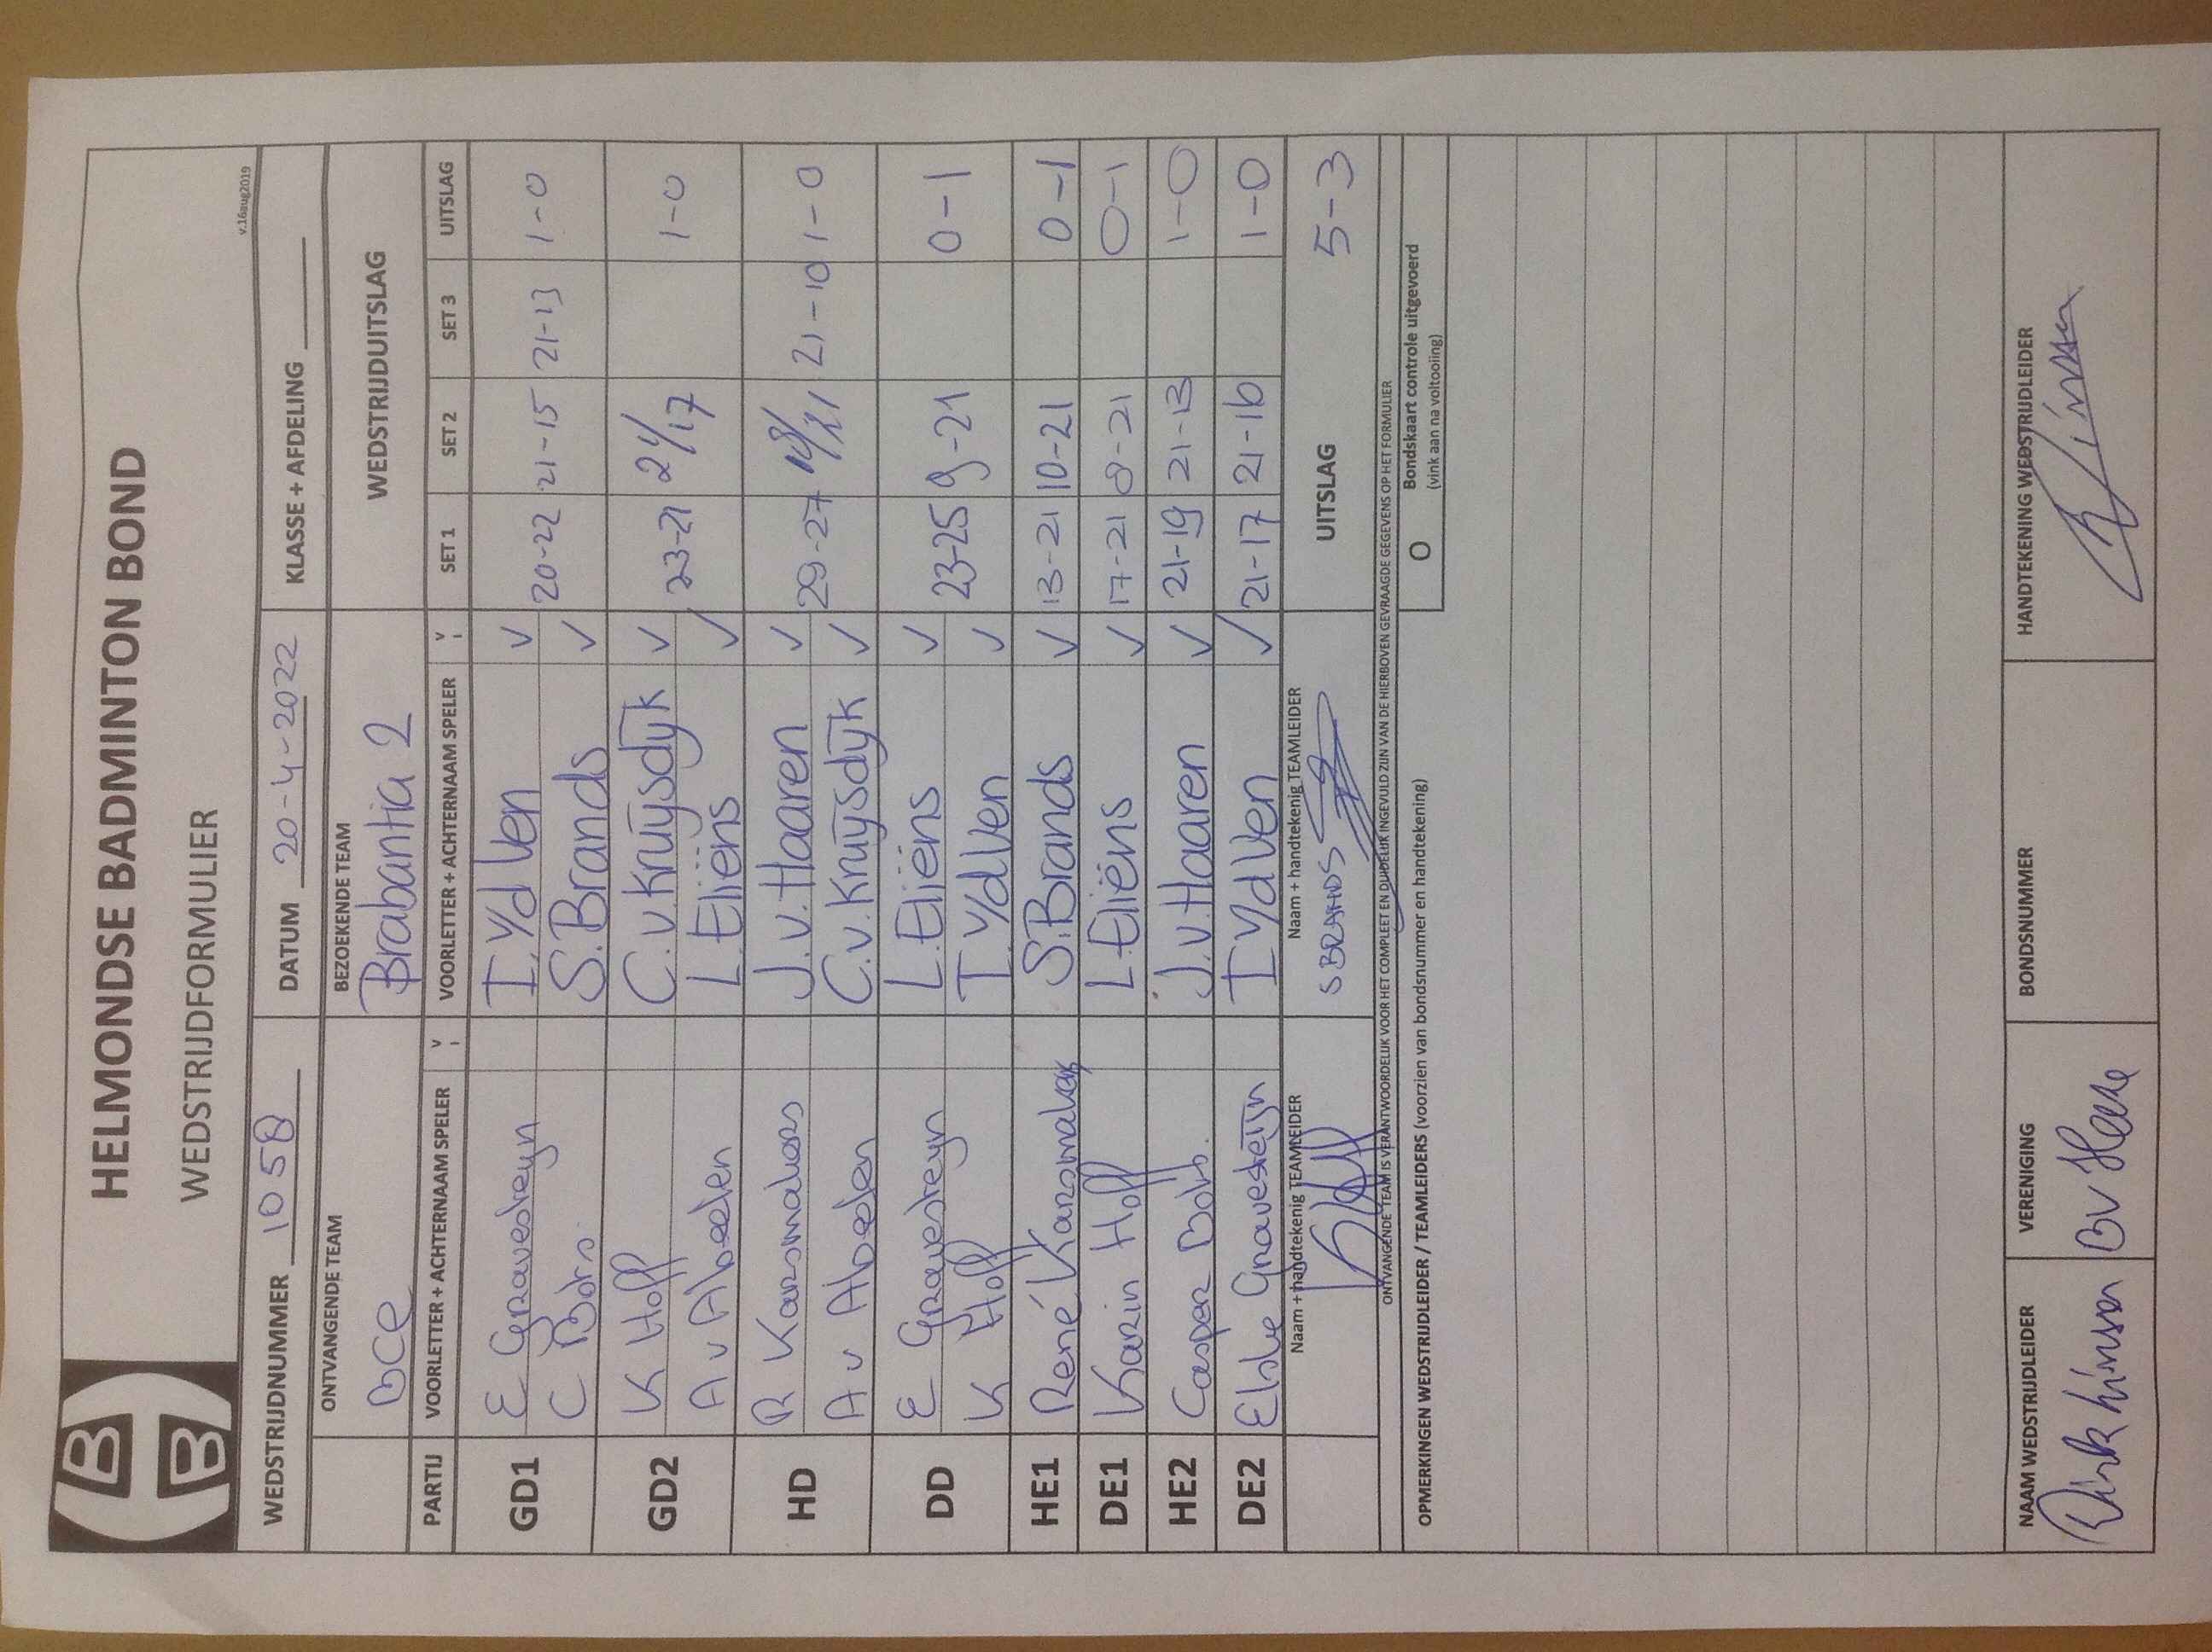 HELMONDSE BADMINTON BOND
WEDSTRIJDFORMULIER
v.16aug2019
WEDSTRIJDNUMMER 1058 DATUM 20-4-2022 KLASSE + AFDELING
ONTVANGENDE TEAM BEZOEKENDE TEAM WEDSTRIJDUITSLAG
BCE Brabantia 2
PARTIJ VOORLETTER + ACHTERNAAM SPELER V VOORLETTER + ACHTERNAAM SPELER V SET 1 SET 2 SET 3 UITSLAG
GD1 E Gravesteyn I. v/d Ven ✓ 20-22 21-15 21-13 1-0
C Bots S. Brands ✓
GD2 K Hoff C. v. Kruÿsdÿk ✓ 23-21 21/17 1-0
A v Abeelen L. Eliëns ✓
HD R Karsmakers J. v. Haaren ✓ 29-27 19/21 21-10 1-0
A v Abeelen C. v. Kruÿsdÿk ✓
DD E Gravesteyn L. Eliëns ✓ 23-25 9-21 0-1
K Hoff I v/d Ven ✓
HE1 René Karsmakers S. Brands ✓ 13-21 10-21 0-1
DE1 Karin Hoff L. Eliëns ✓ 17-21 8-21 0-1
HE2 Casper Bots J. v. Haaren ✓ 21-19 21-13 1-0
DE2 Elske Gravesteijn I v/d Ven ✓ 21-17 21-16 1-0
Naam + handtekenig TEAMLEIDER Naam + handtekenig TEAMLEIDER UITSLAG 5-3
KHoff S BRANDS
ONTVANGENDE TEAM IS VERANTWOORDELIJK VOOR HET COMPLEET EN DUIDELIJK INGEVULD ZIJN VAN DE HIERBOVEN GEVRAAGDE GEGEVENS OP HET FORMULIER
OPMERKINGEN WEDSTRIJDLEIDER / TEAMLEIDERS (voorzien van bondsnummer en handtekening) O Bondskaart controle uitgevoerd
(vink aan na voltooiing)
NAAM WEDSTRIJDLEIDER VERENIGING BONDSNUMMER HANDTEKENING WEDSTRIJDLEIDER
Dirk Linssen BV